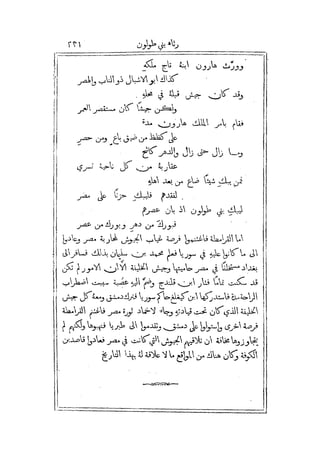 رثاء بني طولون ٢٢١
وورث هارون ابنهُ تاج ملكهِ
كذاك ابو الاشبال ذو الناب والهصر
وقد كان جيش قبلهُ في محلهِ
ولكن جيشًا كان مستقصر العمر
فقام بامر الملك هارون مدة
على كظظ من ضيق باع ومن حصر
وما زال حتى زال والدهر كاشح
عقاربهُ من كل ناحية تسري
فمن يبك شيئًا ضاع من بعد اهلهِ
لفقدهم فليبك حزنًا على مصر
ليبك بني طولون اذ بان عصرهم
فبورك من دهر وبورك من عصر
اما القرامطة فاغتنموا فرصة غياب الجيوش لمحاربة مصر وعادوا
الى ما كانوا عليهِ في سوريا فعلم محمد بن سليمان بذلك فسافر الى
بغداد مستخلفًا في مصر حاميتها وجيش الخليفة الا ان الامور لم تكن
قد سكنت تمامًا فثار ابن قلندج وضم اليهِ عصبة سببت اضطراب
الراحة مدة فاستدركها ابن كيغلغ حاكم سوريا فترك دمشق ومعهُ كل جيش
الخليفة الذي كان تحت قيادتهِ وجاء لاخماد ثورة مصر فاغتنم القرامطة
فرصة اخرى واستولوا على دمشق وتقدموا الى طبريا فنهبوها ولكنهم لم
يتجاوزوها مخافة ان تلاقيهم الجيوش التي كانت في مصر فعادوا قاصدين
الكوفة وكان هناك من المواقع ما لا علاقة لهُ بهذا التاريخ